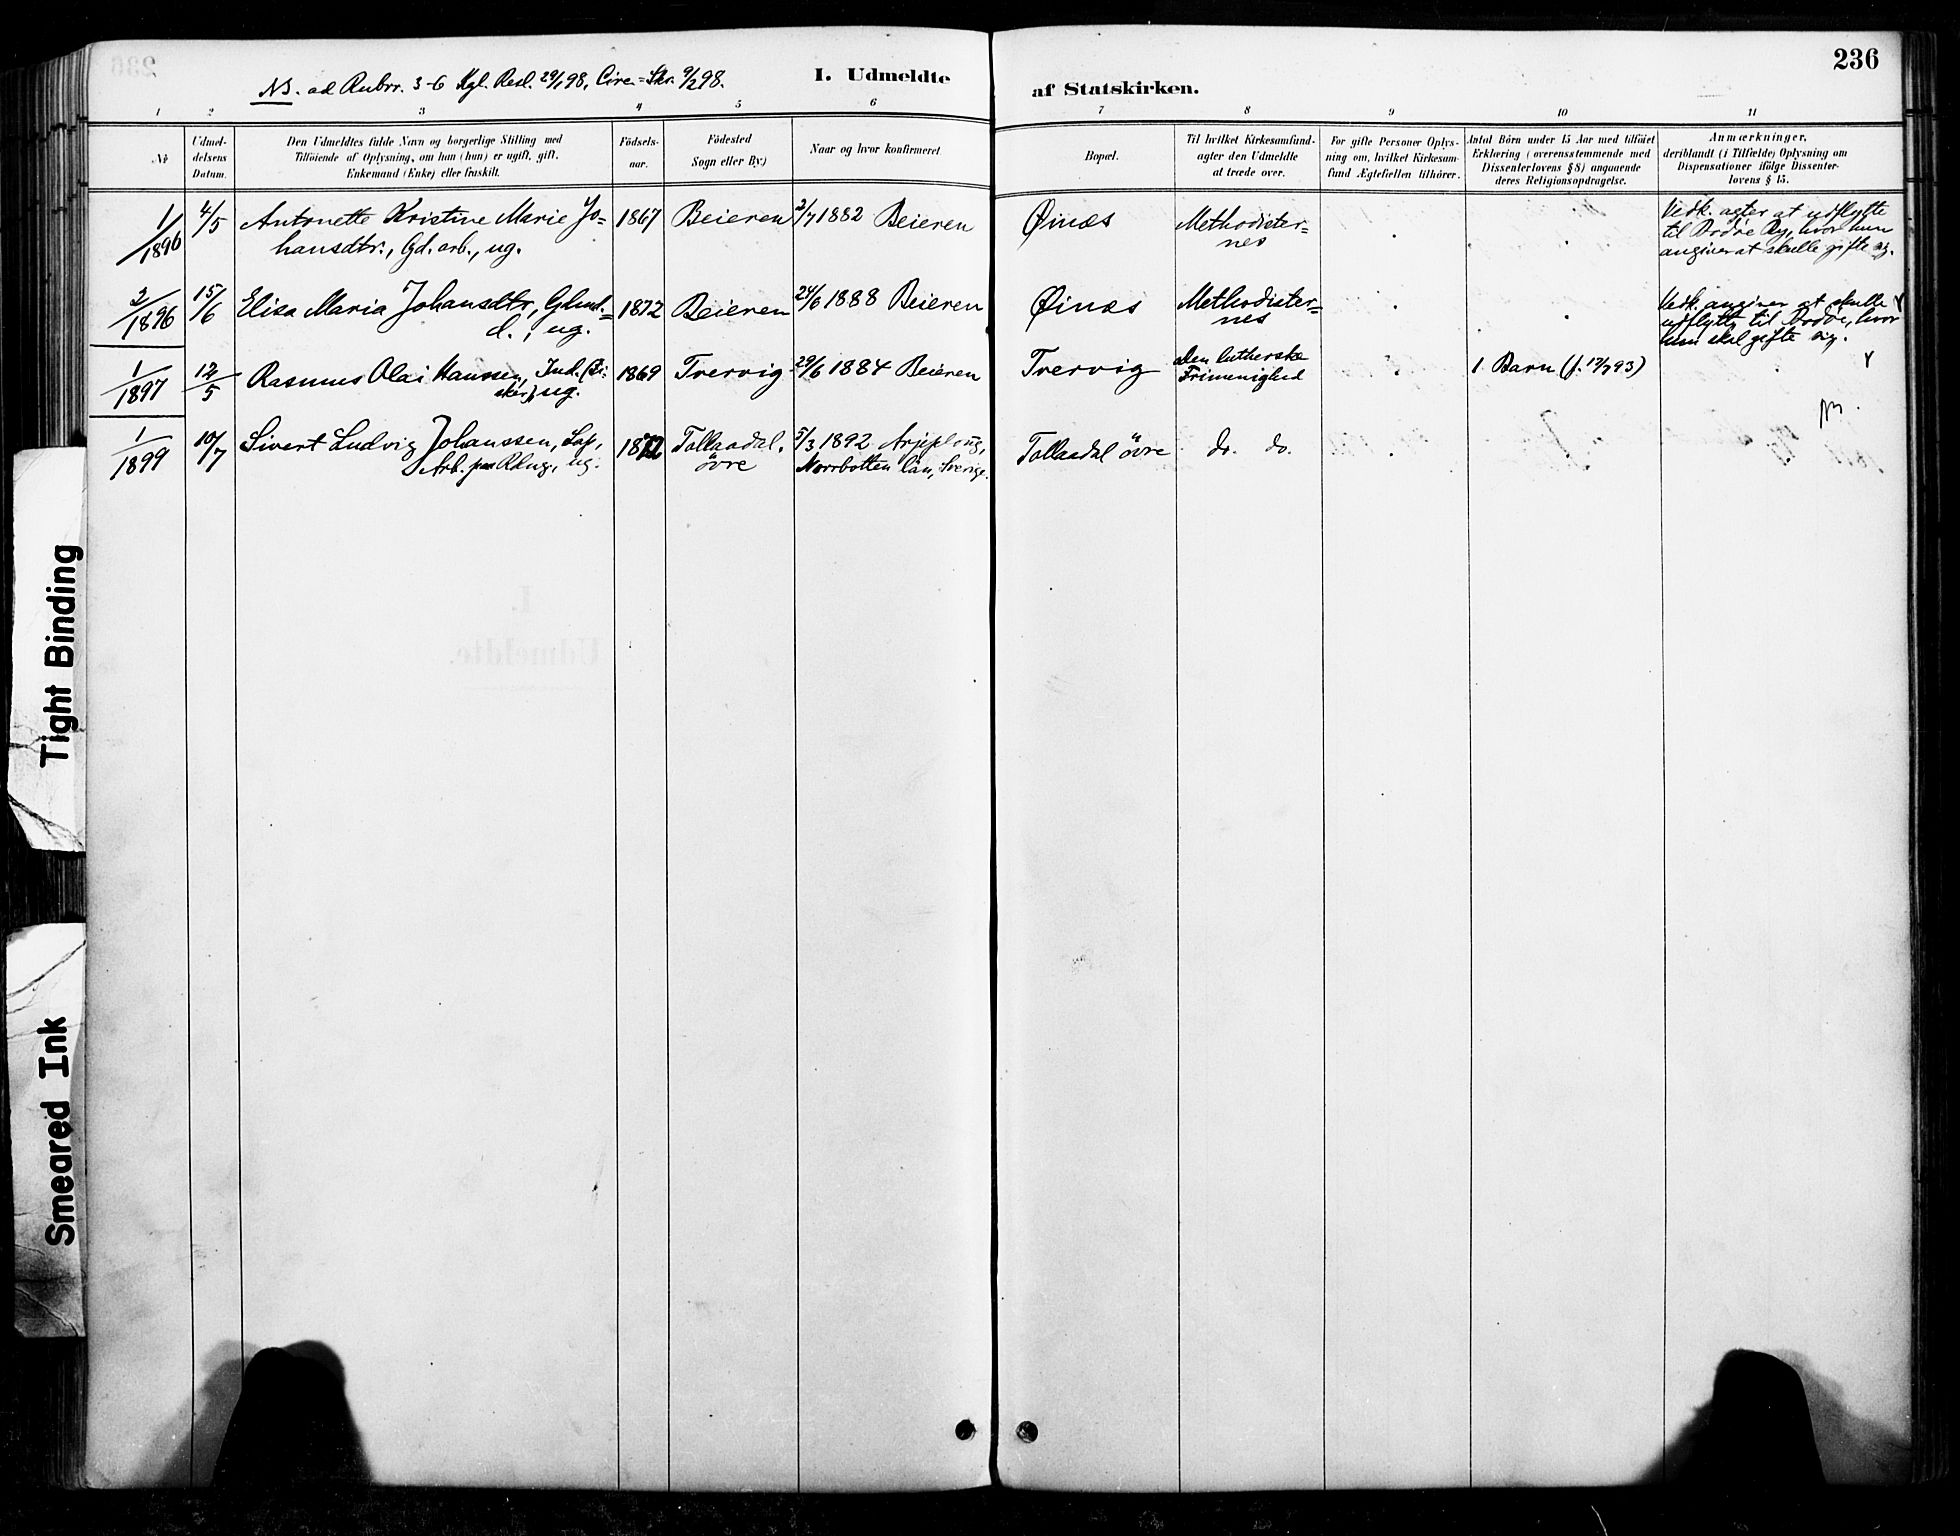 236
NB. ad Rubrr. 3-6 Kgl. Resl. 29/1 98, Circ.-Skr. 9/2 98.
I. Udmeldte
af Statskirken.
1 2 3 4 5 6 7 8 9 10 11
No
Udmel-
delsens
Datum.
Den Udmeldtes fulde Navn og borgerlige Stilling med
Tilföiende af Oplysning, om han (hun) er ugift, gift,
Enkemand (Enke) eller fraskilt.
Födsels-
aar.
Födested
Sogn eller By.)
Naar og hvor konfirmeret
Bopæl.
Til hvilket Kirkesamfund
agter den Udmeldte
at træde over.
For gifte Personer Oplys-
ning om, hvilket Kirkesam-
fund Ægtefællen tilhörer.
Antal Börn under 15 Aar med tilföiet
Erklæring (overensstemmende med
Dissenterlovens § 8) angaaende
deres Religionsopdragelse.
Anmærkninger,
deriblandt (i Tilfælde) Oplysning om
Dispensationer ifölge Dissenter-
lovens § 15.
1/1896 4/5 Antonette Kristine Marie Jo=
hansdtr., Gd. arb., ug.
1867 Beieren 2/7 1882 Beieren
Øinæs
Methodister=
nes
Vedk. agter at udflytte
til Bodöe By, hvor hun
angiver at skulle gifte sig.
2/1896 15/6 Elisa Maria Johansdtr,
d., ug.
1872 Beieren 24/6 1888 Beieren
Øinæs
Methodister=
nes
Vedk. angiver at skulle
udflytte til Bodöe, hvor
hun skal gifte sig.
1/1897 12/5 Rasmus Olai Hanssen, Ind. (Fi-
sker), ug.
1869 Tvervig 29/6 1884 Beieren
Tvervig
Den lutherske
Frimenighed
1 Barn (f. 12/7 93)
1/1899 10/7 Sivert Ludvig Johanssen, Lap,
Arb. paa Rdng, ug.
1872 Tollaadal,
övre
5/3 1892 Arjeploug,
Norrbotten län, Sverige.
Tollaadal övre
do. do.
I.
Udmeldte.
Tight Binding
Smeared Ink